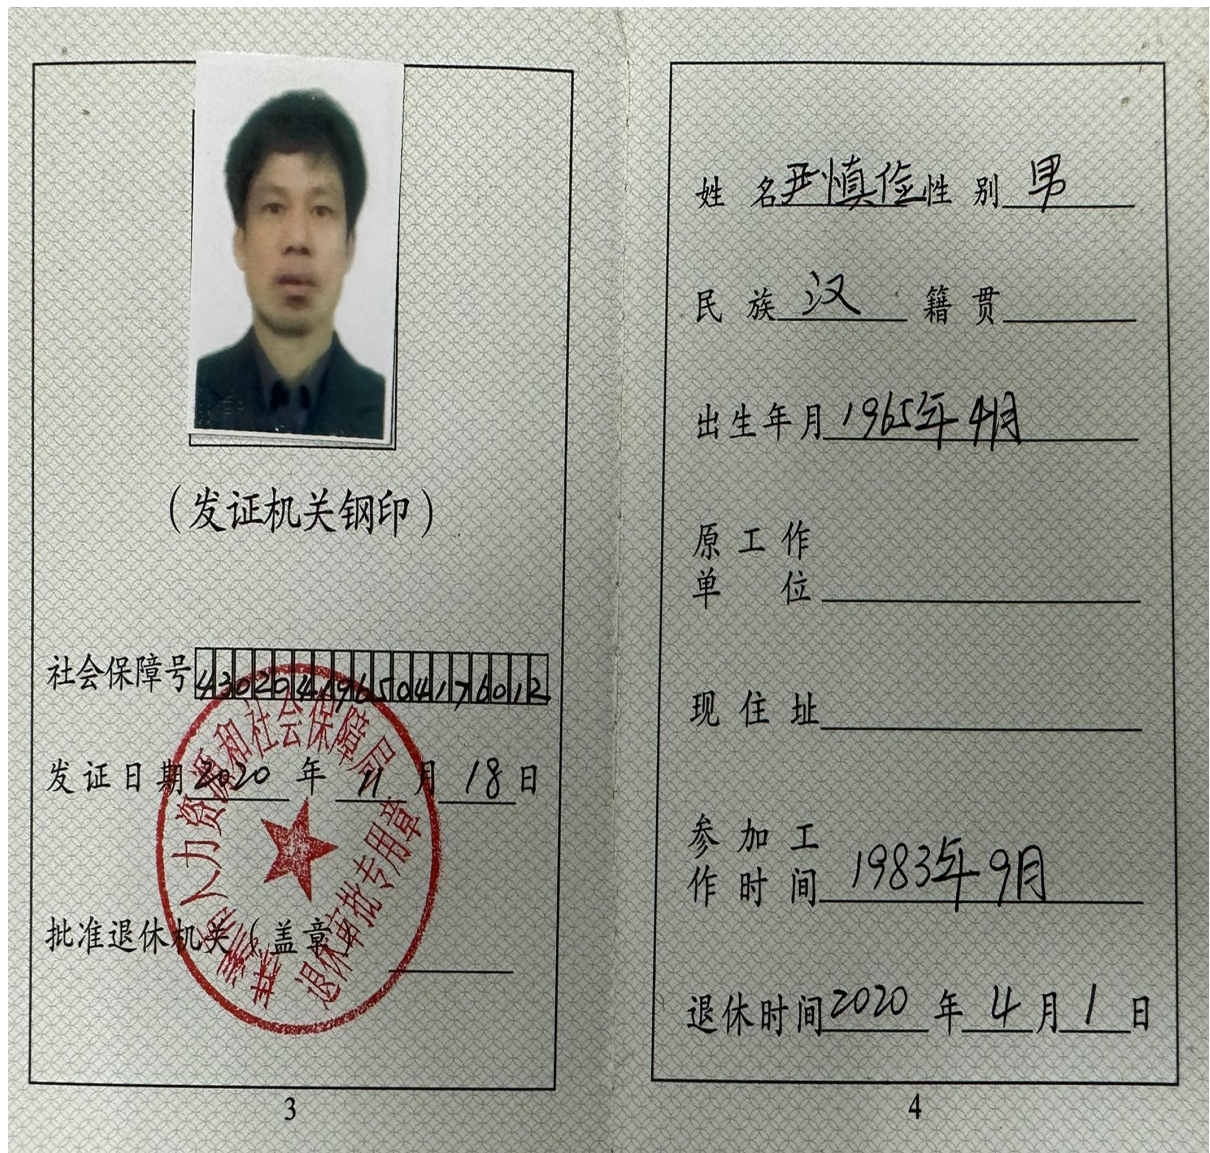 (发证机关钢印)
社会保障号 430204196504176012
发证日期 2020 年 11 月 18 日
批准退休机关(盖章)
株洲市人力资源和社会保障局
退休审批专用章
3
姓名 尹慎俭 性别 男
民族 汉 籍贯
出生年月 1965年4月
原工作
单位
现住址
参加工
作时间 1983年9月
退休时间 2020 年 4 月 1 日
4